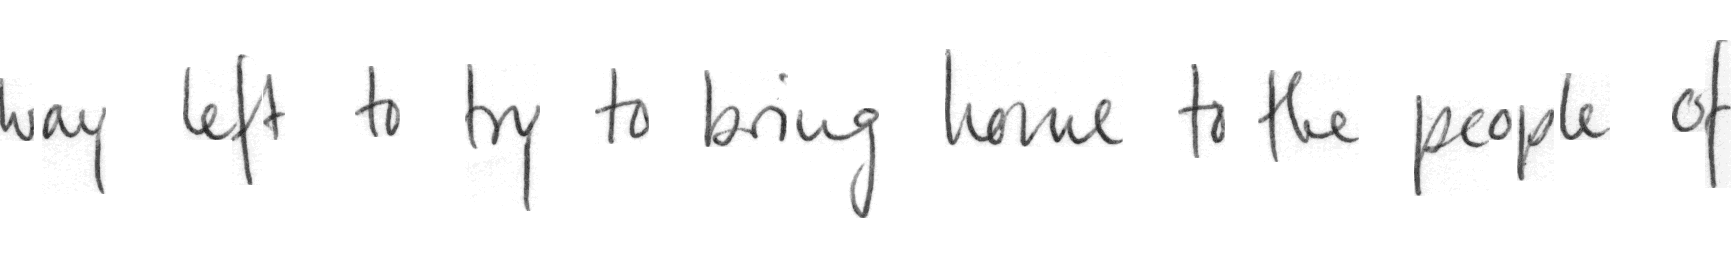 way left to try to bring home to the people of